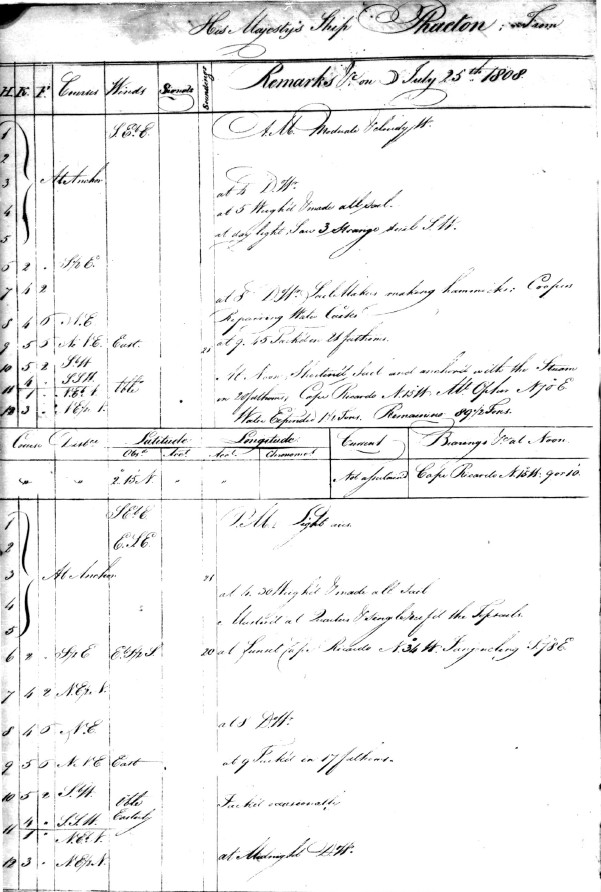 His Majesty's Ship Phaeton; From
H. K. F. Courses Winds Signals Soundings Remarks &c on July 25th 1808.
1 S. E. A.M. Moderate & Cloudy Wr.
2
3 At Anchor
at 4 Do Wr.
4 at 5 Weigh'd & made all sail.
5 at day light Saw 3 Strange Sails S.W.
6 2 "
7 4 2 at 8 Do Wr. Sail Makers making hammocks: Coopers
8 4 5 N.E Repairing Water Casks
9 5 5 N.N.E East. at 9.45 Tack'd in 21 fathoms.
10 5 2 S.W At Noon Shortened Sail and anchored with the Stream
11 4 " S.S.W. Vble in 20 fathoms, Cape Ricardo N.15W Mt. Ophir N 70 E
1 "
12 3 " Water Expended 1 1/2 Tons. Remains 89 1/2 Tons.
Course Distce Latitude Longitude Current Bearings &c at Noon.
Obsd Acct Acct Chronomet
" " 2.15 N. " " Not ascertained Cape Ricardo N.15W. 9 or 10.
1 P.M. Light airs
2 E.S.E.
3 At Anchor
at 4.30 Weigh'd & made all Sail
4
5 Mustered at Quarters & Single Reef'd the Topsails.
6 2 " 20 at Sunset Cape Ricardo N.34 W. S.78E
7 4 2
8 4 5 N.E at 8 Do Wr.
9 5 5 N.N.E East at 9 Tack'd in 17 fathoms.
10 5 2 S.W. Vble Tack'd occasionally
11 4 " S.S.W. Easterly
1 "
12 3 " at Midnight Do Wr.